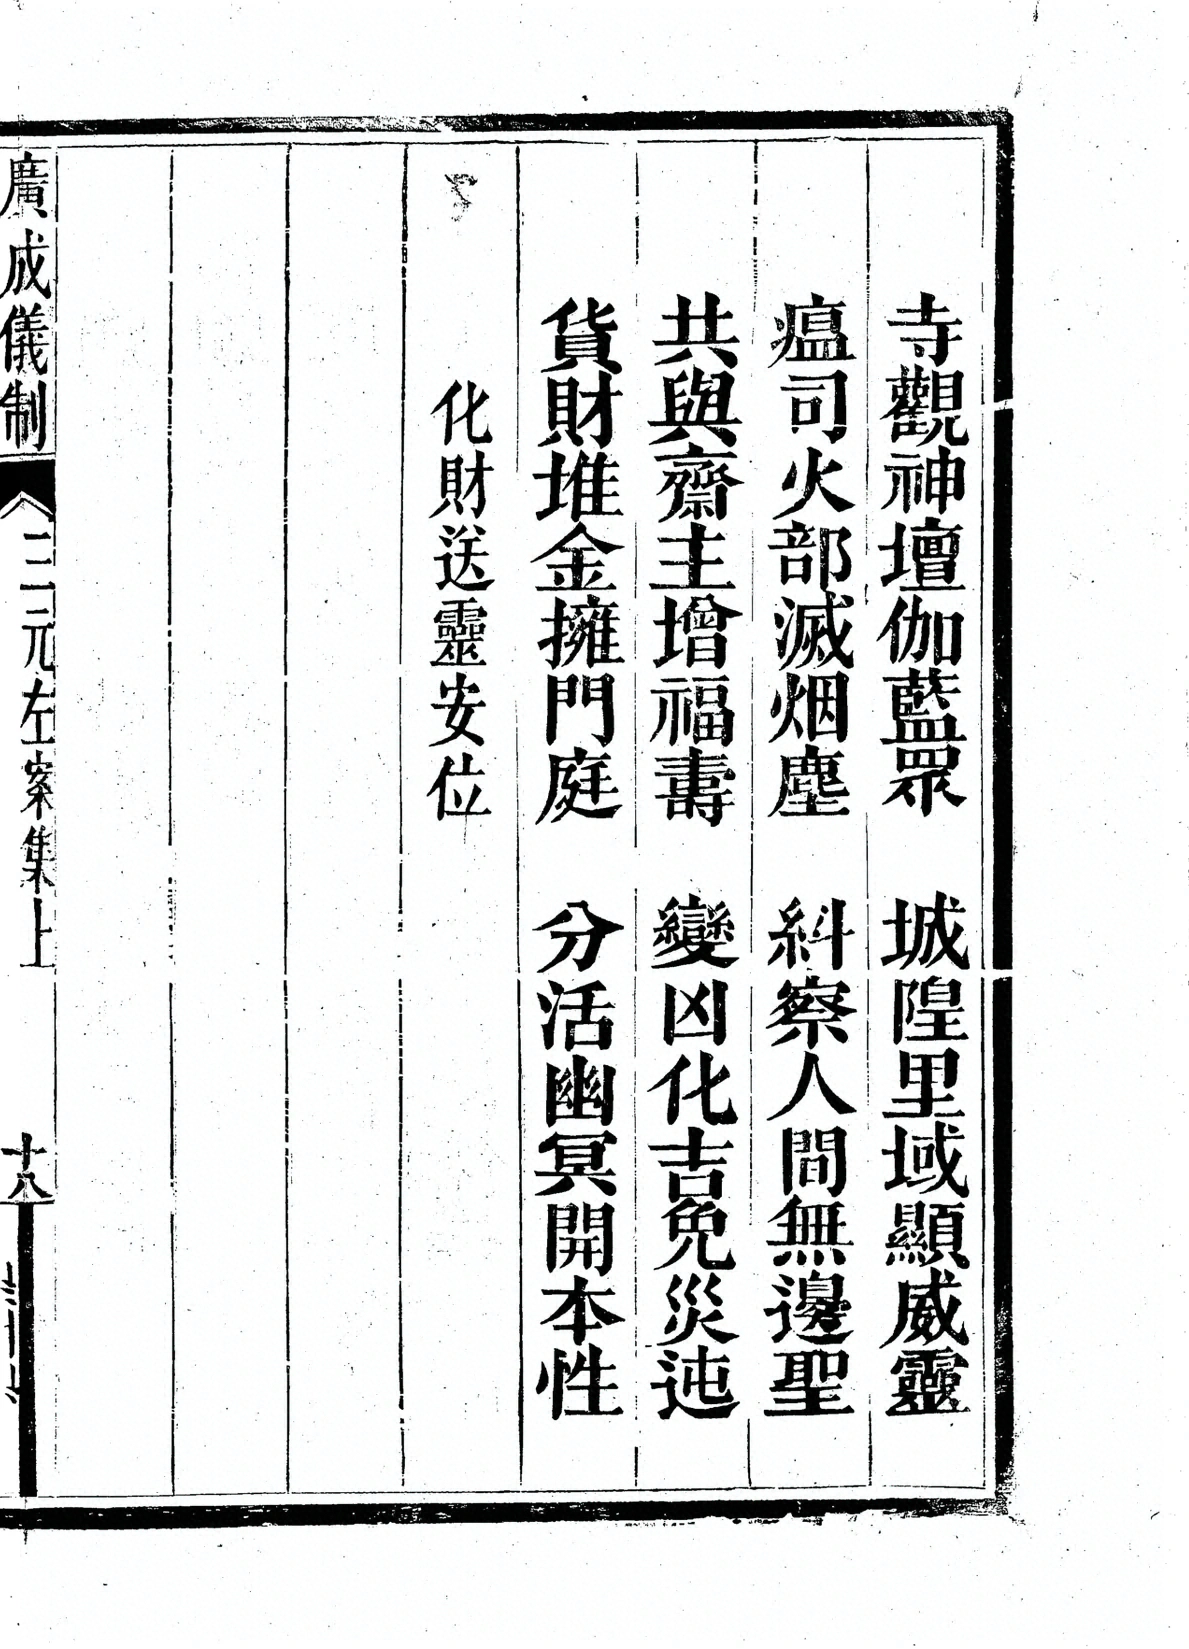 寺觀神壇伽藍眾　城隍里域顯威靈
瘟司火部滅烟塵　糾察人間無邊聖
共與齋主增福壽　變凶化吉免災迍
貨財堆金擁門庭　分活幽冥開本性
化財送靈安位
廣成儀制　三元左案集上　十八